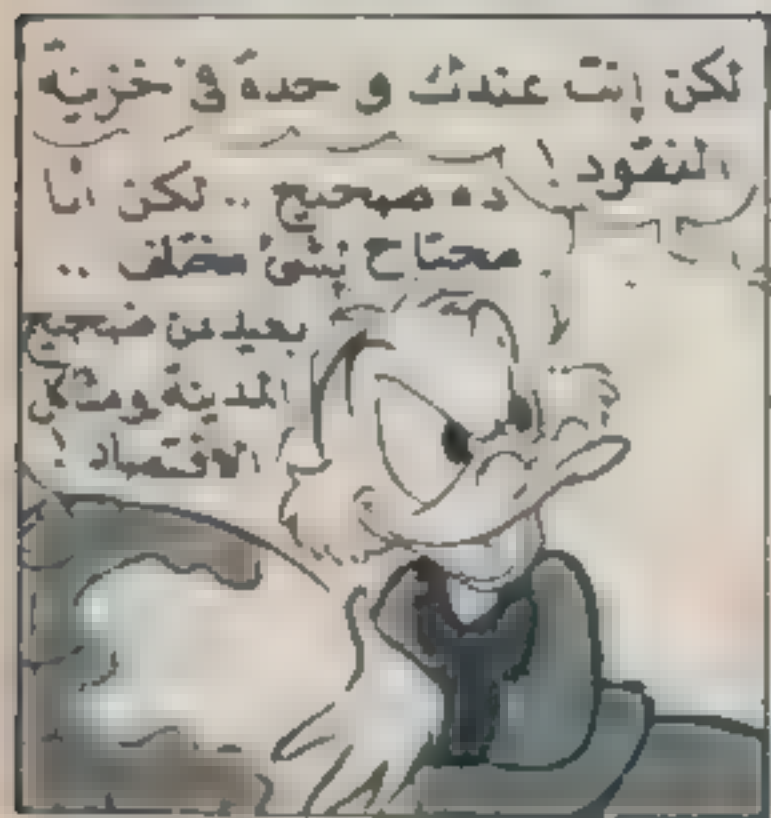 لكن إنت عندك وحدة فى خزينة
النقود !
ده صحيح .. لكن انا
محتاج لشئ مختلف ..
بعيد عن ضجيج
المدينة ومشاكل
الاقتصاد !